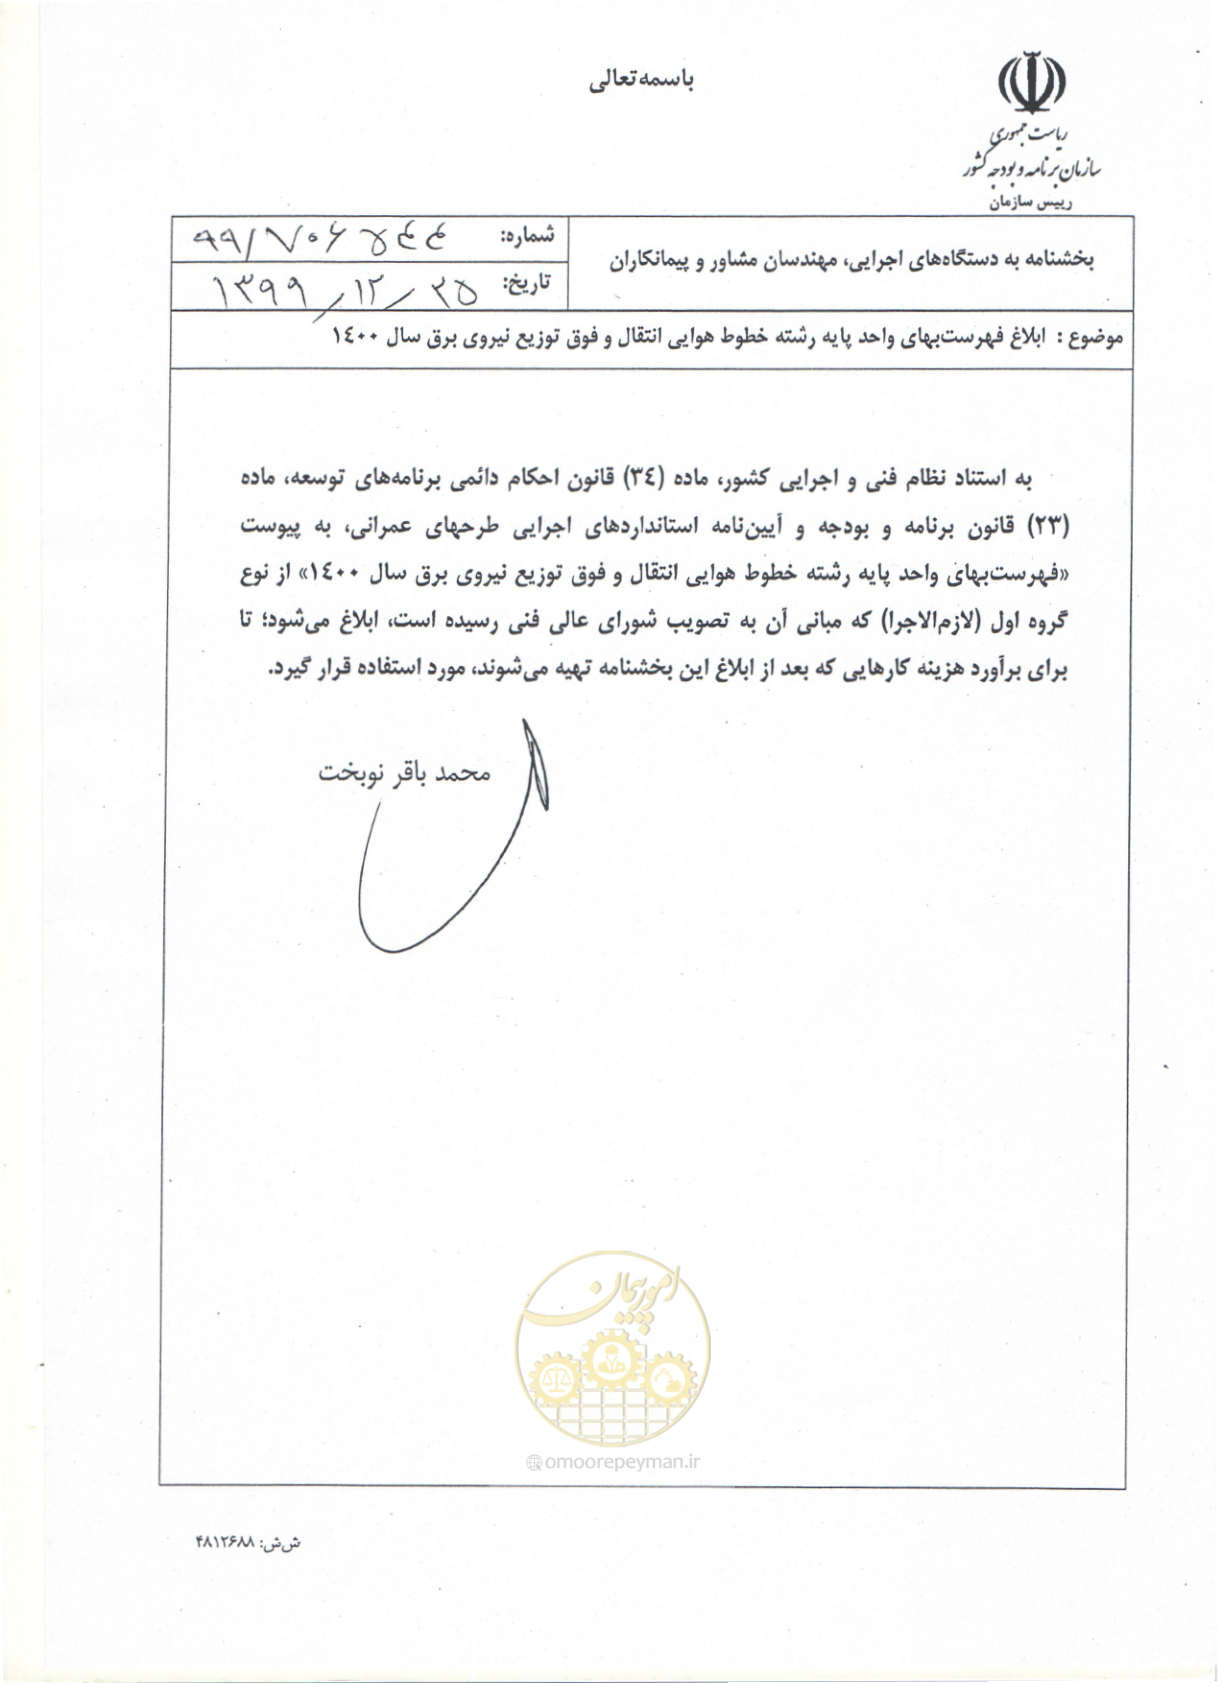 باسمه تعالی
ریاست جمهوری
سازمان برنامه و بودجه کشور
رییس سازمان
بخشنامه به دستگاه‌های اجرایی، مهندسان مشاور و پیمانکاران
شماره: ۹۹/۷۰۶۵۴۴
تاریخ: ۱۳۹۹/۱۲/۲۵
موضوع : ابلاغ فهرست‌بهای واحد پایه رشته خطوط هوایی انتقال و فوق توزیع نیروی برق سال ۱۴۰۰
به استناد نظام فنی و اجرایی کشور، ماده (۳۴) قانون احکام دائمی برنامه‌های توسعه، ماده
(۲۳) قانون برنامه و بودجه و آیین‌نامه استانداردهای اجرایی طرحهای عمرانی، به پیوست
«فهرست‌بهای واحد پایه رشته خطوط هوایی انتقال و فوق توزیع نیروی برق سال ۱۴۰۰» از نوع
گروه اول (لازم‌الاجرا) که مبانی آن به تصویب شورای عالی فنی رسیده است، ابلاغ می‌شود؛ تا
برای برآورد هزینه کارهایی که بعد از ابلاغ این بخشنامه تهیه می‌شوند، مورد استفاده قرار گیرد.
محمد باقر نوبخت
امور پیمان
@omoorepeyman.ir
ش‌ش: ۴۸۱۲۶۸۸